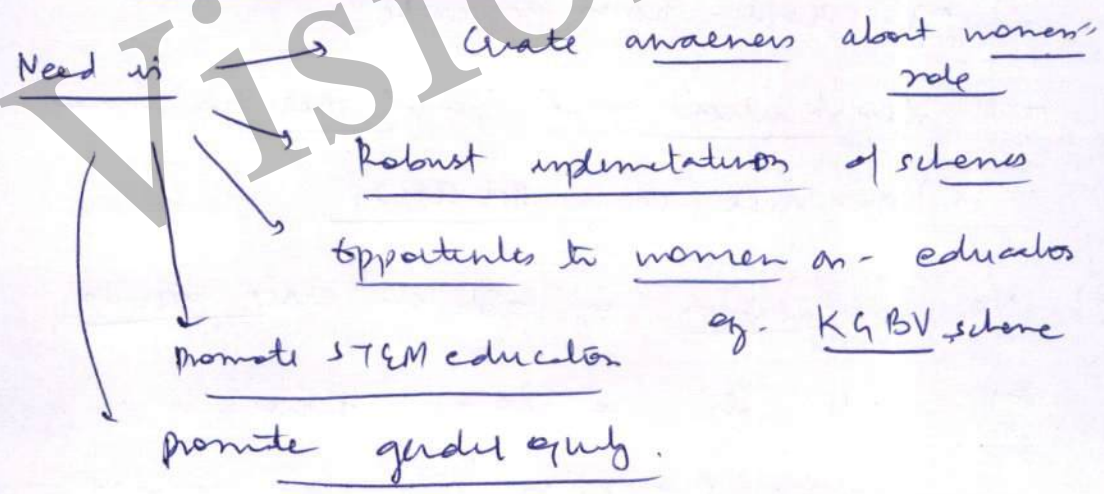 Need is → Create awareness about women's
role
Robust implementation of schemes
Opportunities to women on - education
eg. KGBV scheme
promote STEM education
promote gender equity.
Visio